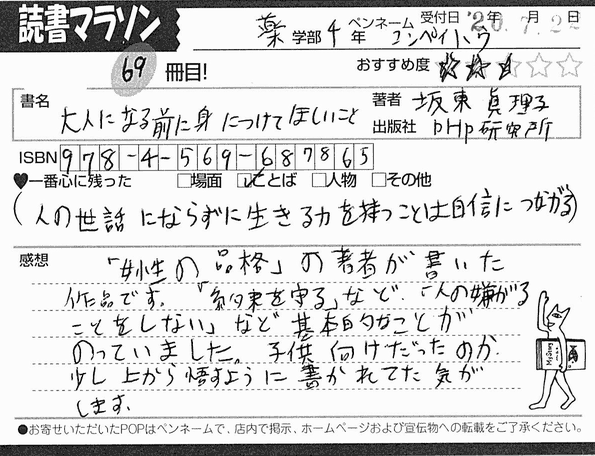 読書マラソン
薬 学部 4 年 ペンネーム コンペイトウ 受付日 '20年 7月 22日
69 冊目!
おすすめ度 ★★★☆☆
書名 大人になる前に身につけてほしいこと
著者 坂東眞理子
出版社 PHP研究所
ISBN 978-4-569-687865
♥一番心に残った □場面 ☑ことば □人物 □その他
(人の世話にならずに生きる力を持つことは自信につながる)
感想 「女性の品格」の著者が書いた
作品です。「約束を守る」など、「人の嫌がる
ことをしない」など基本的なことが
のっていました。子供向けだったのか、
少し上から悟すように書かれてた気が
します。
●お寄せいただいたPOPはペンネームで、店内で掲示、ホームページおよび宣伝物への転載をご了承ください。